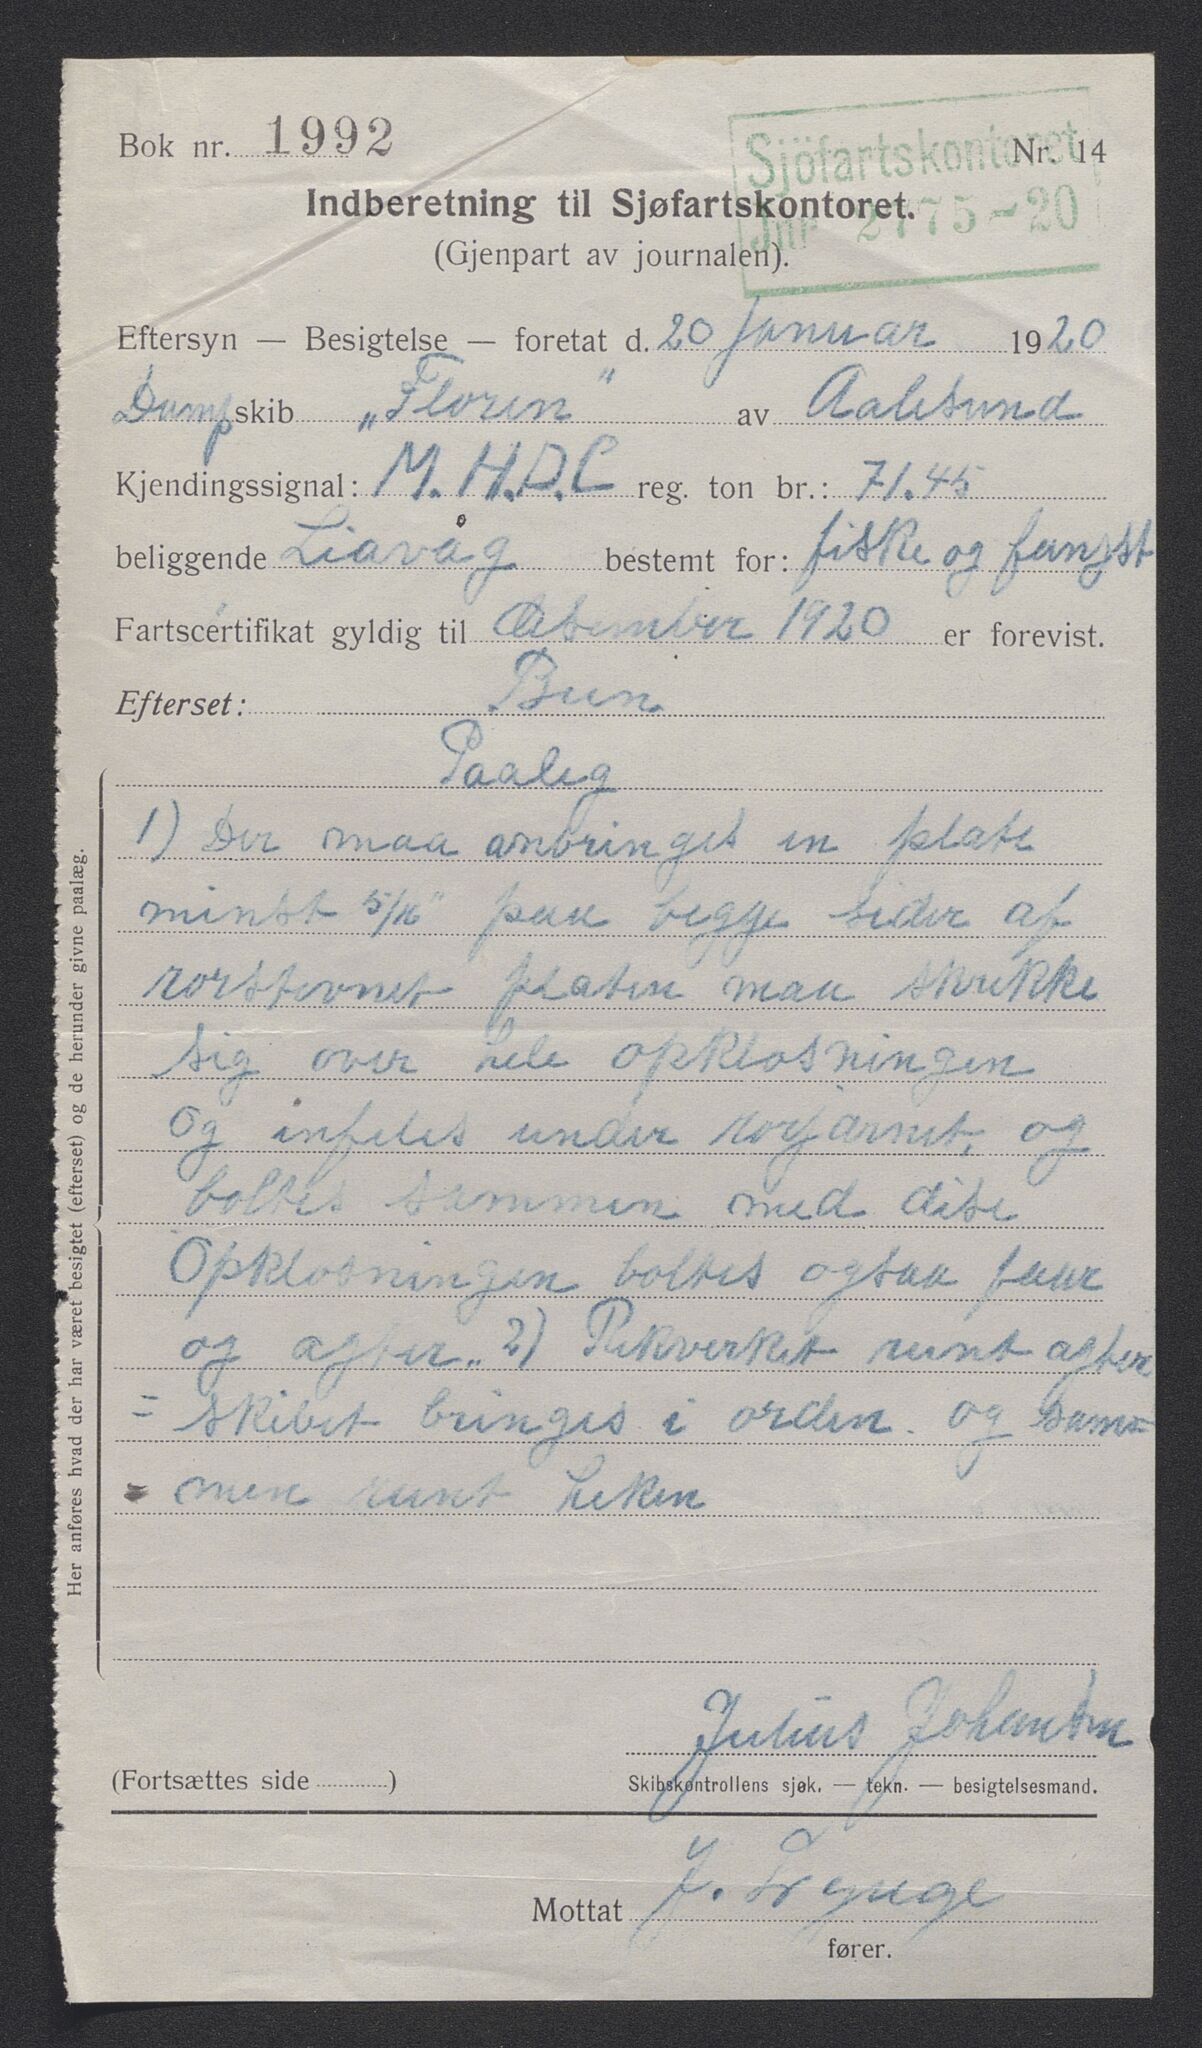 Bok nr. 1992
Nr. 14
Sjöfartskontoret
Jnr 2775-20
Indberetning til Sjøfartskontoret.
(Gjenpart av journalen).
Eftersyn — Besigtelse — foretat d. 20 Januar 1920
Dampskib „Floren" av Aalesund
Kjendingssignal: M.H.D.C reg. ton br.: 71.45
beliggende Liavåg bestemt for: fiske og fangst
Fartscertifikat gyldig til desember 1920 er forevist.
Efterset: Bun
Paaleg
1) Der maa anbringes en plate
minst 5/16" paa begge sider af
rorstevnet platen maa strekke
sig over hele opklosningen
og infeles under rorjarnet, og
boltes sammen med dise
Opklosningen boltes ogsaa faar
og agter„ 2) Rekverket runt agter
= skibet bringes i orden. og sam=
= men runt heken
Her anføres hvad der har været besigtet (efterset) og de herunder givne paalæg.
Julius Johansen
(Fortsættes side )
Skibskontrollens sjøk. — tekn. — besigtelsesmand.
Mottat J.
fører.